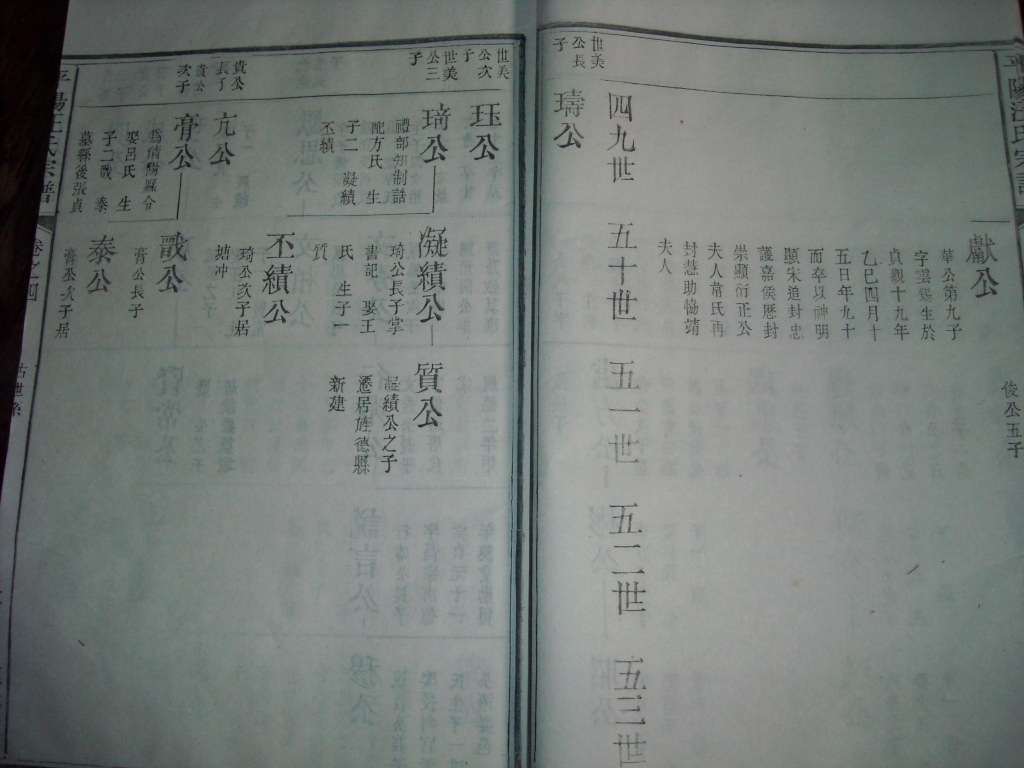 平陽汪氏宗譜
俊公五子
獻公
華公第九子
字雲錫生於
貞觀十九年
乙巳四月十
五日年九十
而卒以神明
顯宋追封忠
護嘉侯歷封
崇顯衍正公
夫人常氏再
封慈助協靖
夫人
四九世 五十世 五一世 五二世 五三世
世美
公長
子
璹公
世美
公次
子
珏公
世美
公三
子
琦公
禮部知制誥
配方氏 生
子二 凝績
丕績
凝績公
琦公長子掌
書記 娶王
氏 生子一
質
質公
凝績公之子
遷居旌德縣
新建
丕績公
琦公次子居
塘冲
貴公
長子
亢公
貴公
次子
膏公
娶呂氏 生
子二 戩 泰
戩公
膏公長子
泰公
膏公次子居
平陽汪氏宗譜
卷之四